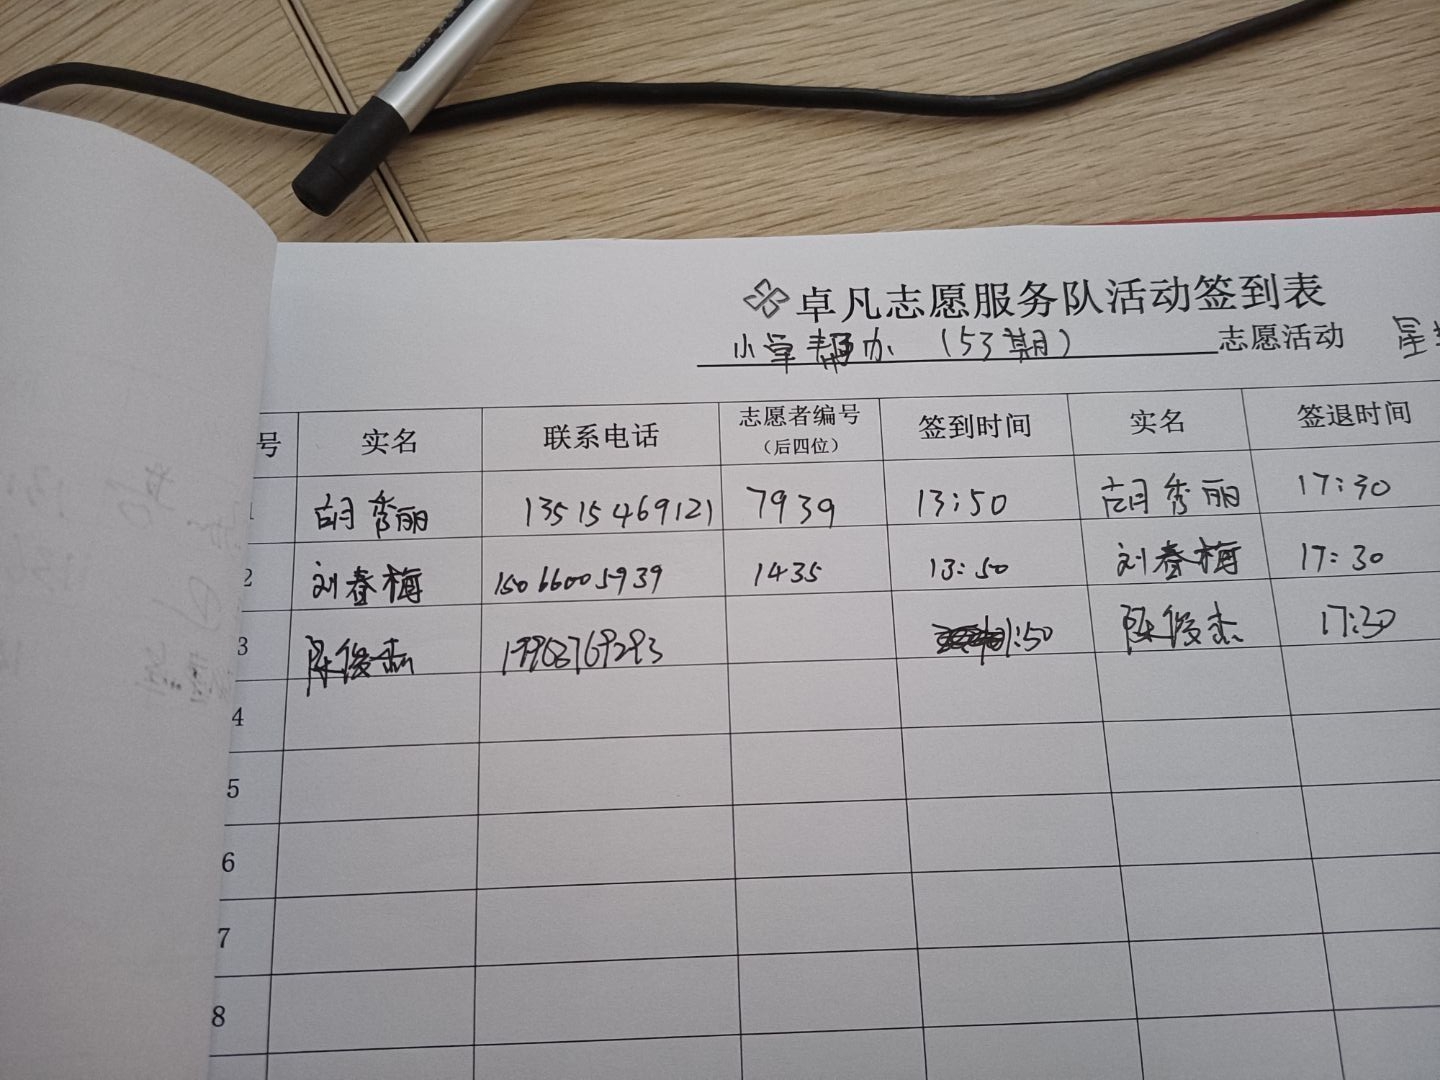 卓凡志愿服务队活动签到表
小草帮办（53期）志愿活动 星
号 实名 联系电话 志愿者编号（后四位） 签到时间 实名 签退时间
1 胡秀丽 13515469121 7939 13:50 胡秀丽 17:30
2 刘春梅 15066005939 1435 13:50 刘春梅 17:30
3 陈俊杰 :50 陈俊杰 17:30
4
5
6
7
8